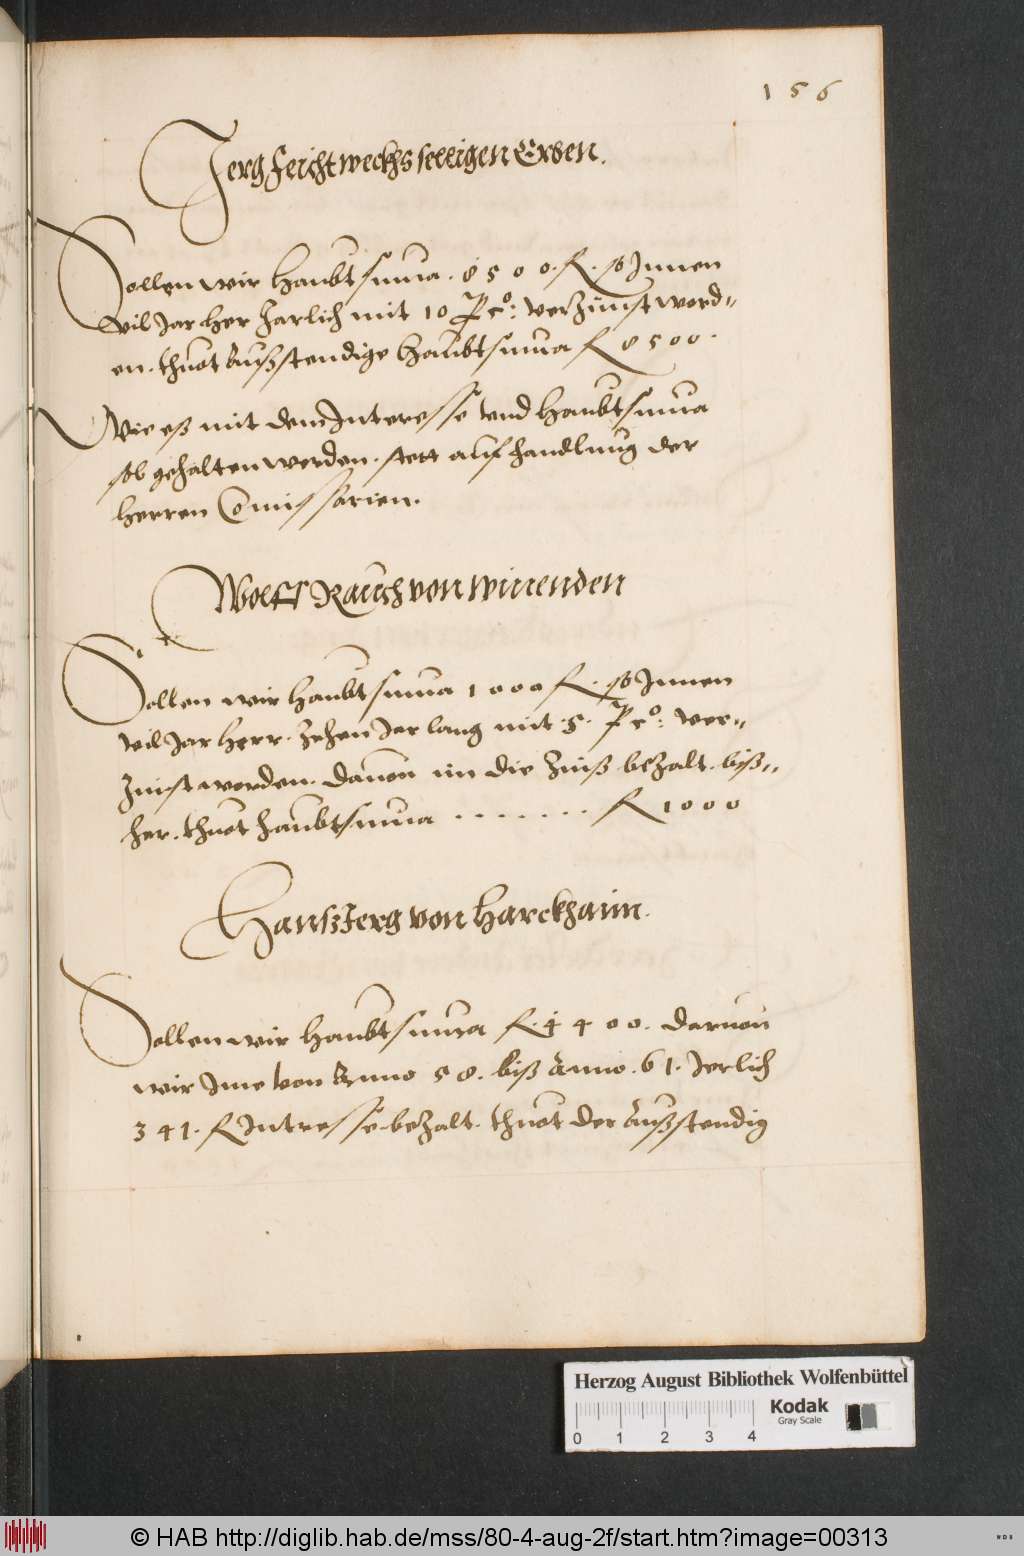 156
Jerg Feichtweckhs selligen Erben.
Sollen wir Haubtsuma. 8500. fl. so Innen
vil Jar her Jarlich mit 10 P c°: verzünst word=
en. thuot Außstendige Haubtsuma fl 8500.
Wie eß mit dem Interesse vnd Haubtsuma
sol gehalten werden. stett auf handlung der
herren Comissarien.
Wolff Rauch von Winenden
Sollen wir Haubtsuma 1000 fl. so Innen
vil Jar herr. Zehen Jar lang mit .5. P c°: ver=
Zinst worden. dauon im die Zinß bezalt. biß=
her. thuot haubtsuma . . . . . . . fl 1000
Hanß Jerg von Harckhaim.
Sollen wir Haubtsuma fl. 4400. daruon
wir Ime von Anno 58. biß Anno. 61. Jerlich
341. fl Intresse bezalt. thuot der Außstendig
Herzog August Bibliothek Wolfenbüttel
Kodak
Gray Scale
0 1 2 3 4
© HAB http://diglib.hab.de/mss/80-4-aug-2f/start.htm?image=00313